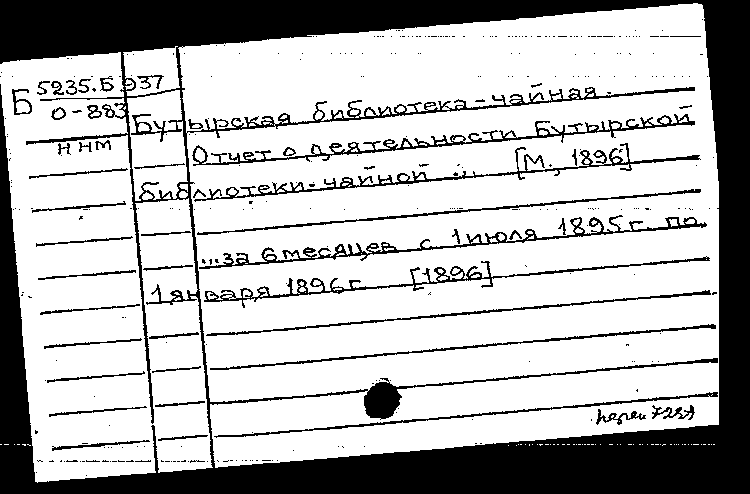 Б 5235.Б 937
О-883
ННМ
Бутырская библиотека-чайная.
Отчет о деятельности Бутырской
библиотеки-чайной ... [М., 1896]
...за 6 месяцев с 1 июля 1895 г. по
1 января 1896 г. [1896]